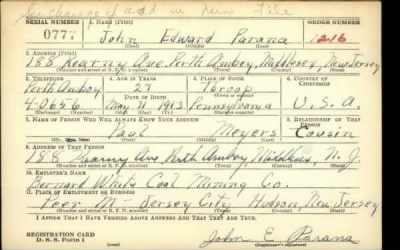 See change of add in Jun File
SERIAL NUMBER 1. NAME (Print) ORDER NUMBER
077 John Edward Parana 1216
(First) (Middle) (Last)
2. ADDRESS (Print)
188 Kearny Ave. Perth Amboy, Middlesex, New Jersey
(Number and street or R. F. D. number) (Town) (County) (State)
3. TELEPHONE 4. AGE IN YEARS 5. PLACE OF BIRTH 6. COUNTRY OF CITIZENSHIP
Perth Amboy 27 Throop
DATE OF BIRTH
4-0656 May 4 1913 Pennsylvania U.S.A.
(Exchange) (Number) (Mo.) (Day) (Yr.) (State or country)
7. NAME OF PERSON WHO WILL ALWAYS KNOW YOUR ADDRESS 8. RELATIONSHIP OF THAT PERSON
Paul Meyers Cousin
9. ADDRESS OF THAT PERSON
188 Kearny Ave. Perth Amboy, Middlesex, N. J.
(Number and street or R. F. D. number) (Town) (County) (State)
10. EMPLOYER'S NAME
Bernard White Coal Mining Co.
11. PLACE OF EMPLOYMENT OR BUSINESS
Peer M - Jersey City Hudson, New Jersey
(Number and street or R. F. D. number) (Town) (County) (State)
I AFFIRM THAT I HAVE VERIFIED ABOVE ANSWERS AND THAT THEY ARE TRUE.
REGISTRATION CARD
D. S. S. Form 1
John E Parana
(Registrant's signature)